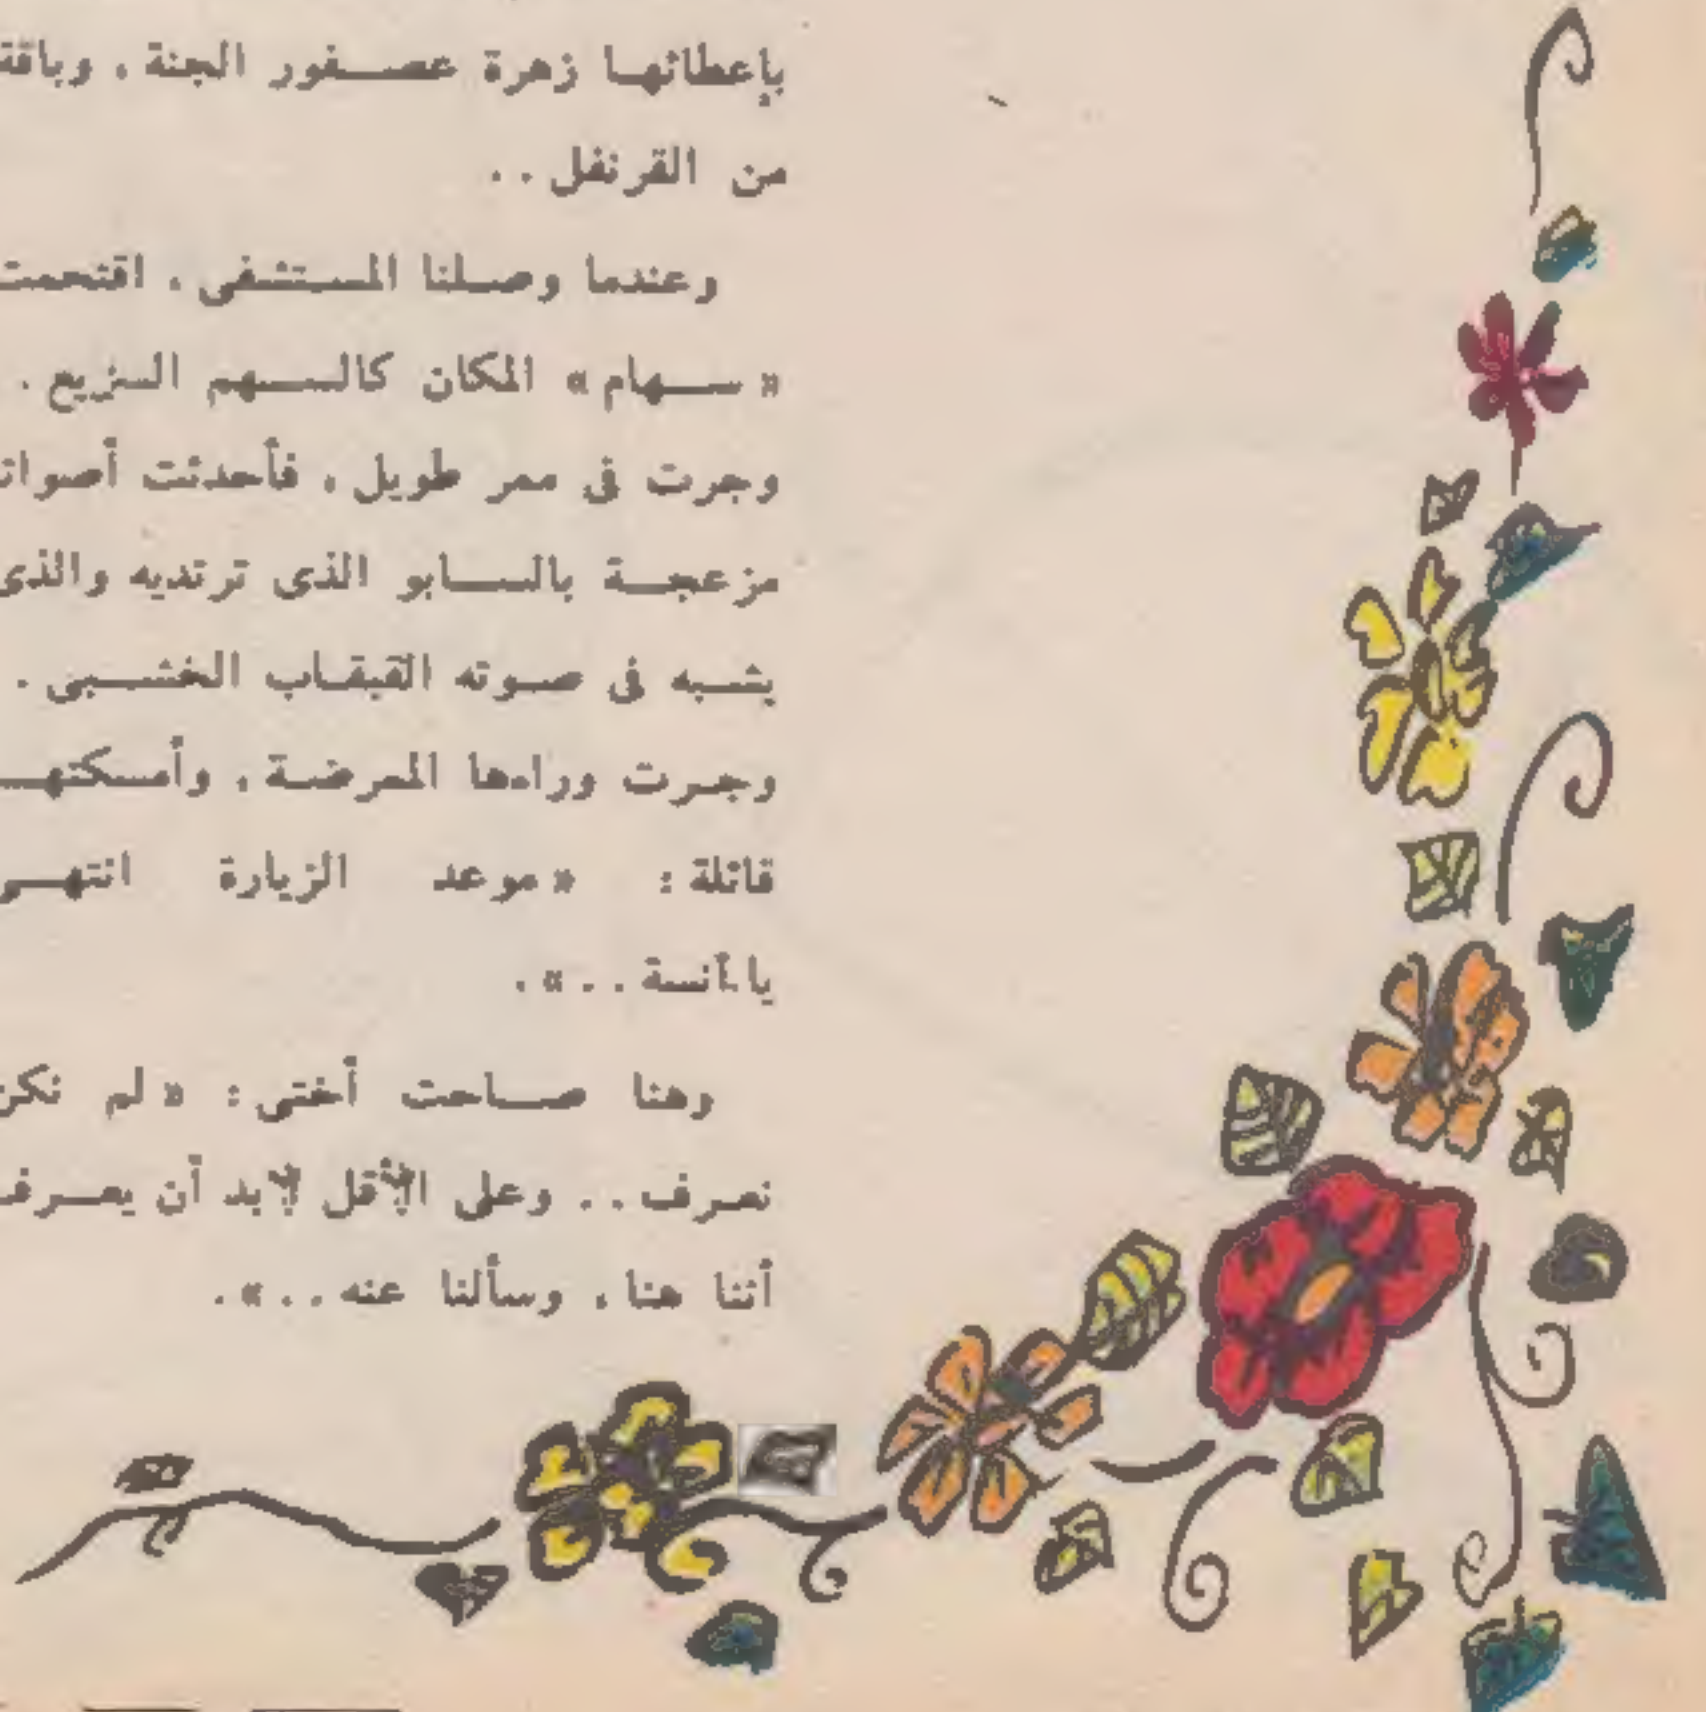 بإعطائها زهرة عصفور الجنة ، وباقة
من القرنفل ..
وعندما وصلنا المستشفى ، اقتحمت
« سهام » المكان كالسهم السريع .
وجرت فى ممر طويل ، فأحدثت أصوات
مزعجة بالسابو الذى ترتديه والذى
يشبه فى صوته القبقاب الخشبى .
وجرت وراءها الممرضة ، وأمسكتهـ
قائلة : « موعد الزيارة انتهى
يا آنسة .. » .
وهنا صاحت أختى : « لم نكن
نعرف .. وعلى الأقل لابد أن يعرف
أننا هنا ، وسألنا عنه .. » .